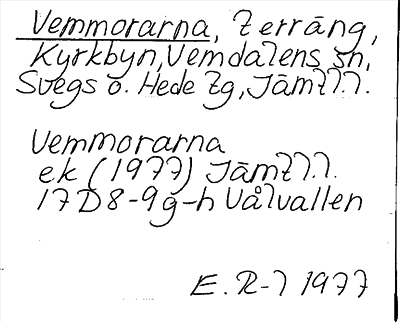 Vemmorarna, Terräng,
Kyrkbyn, Vemdalens sn,
Svegs o. Hede tg, Jämtl.l.
Vemmorarna
ek (1977) Jämtl.l.
17D8-9g-h Vålvallen
E. R-l 1977